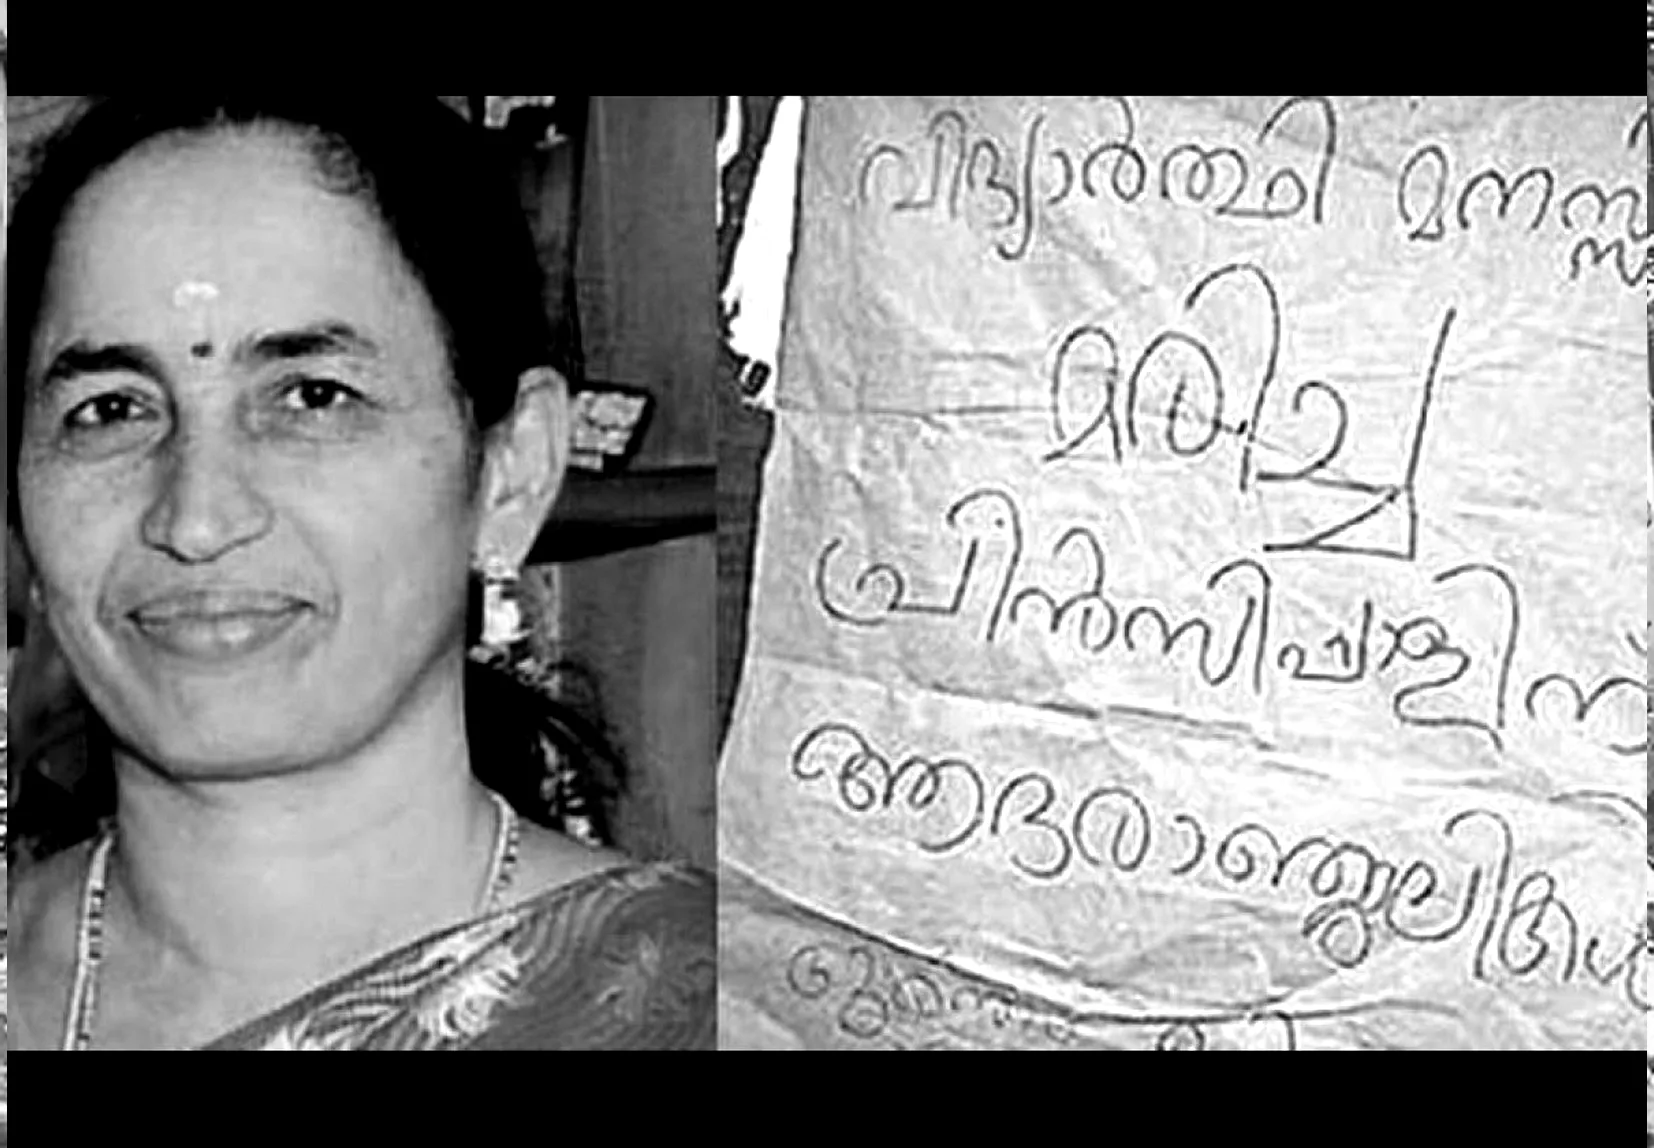 വിദ്യാർത്ഥി
മരിച്ച
പ്രിൻസിപ്പാളിന്
ആദരാഞ്ജലികൾ